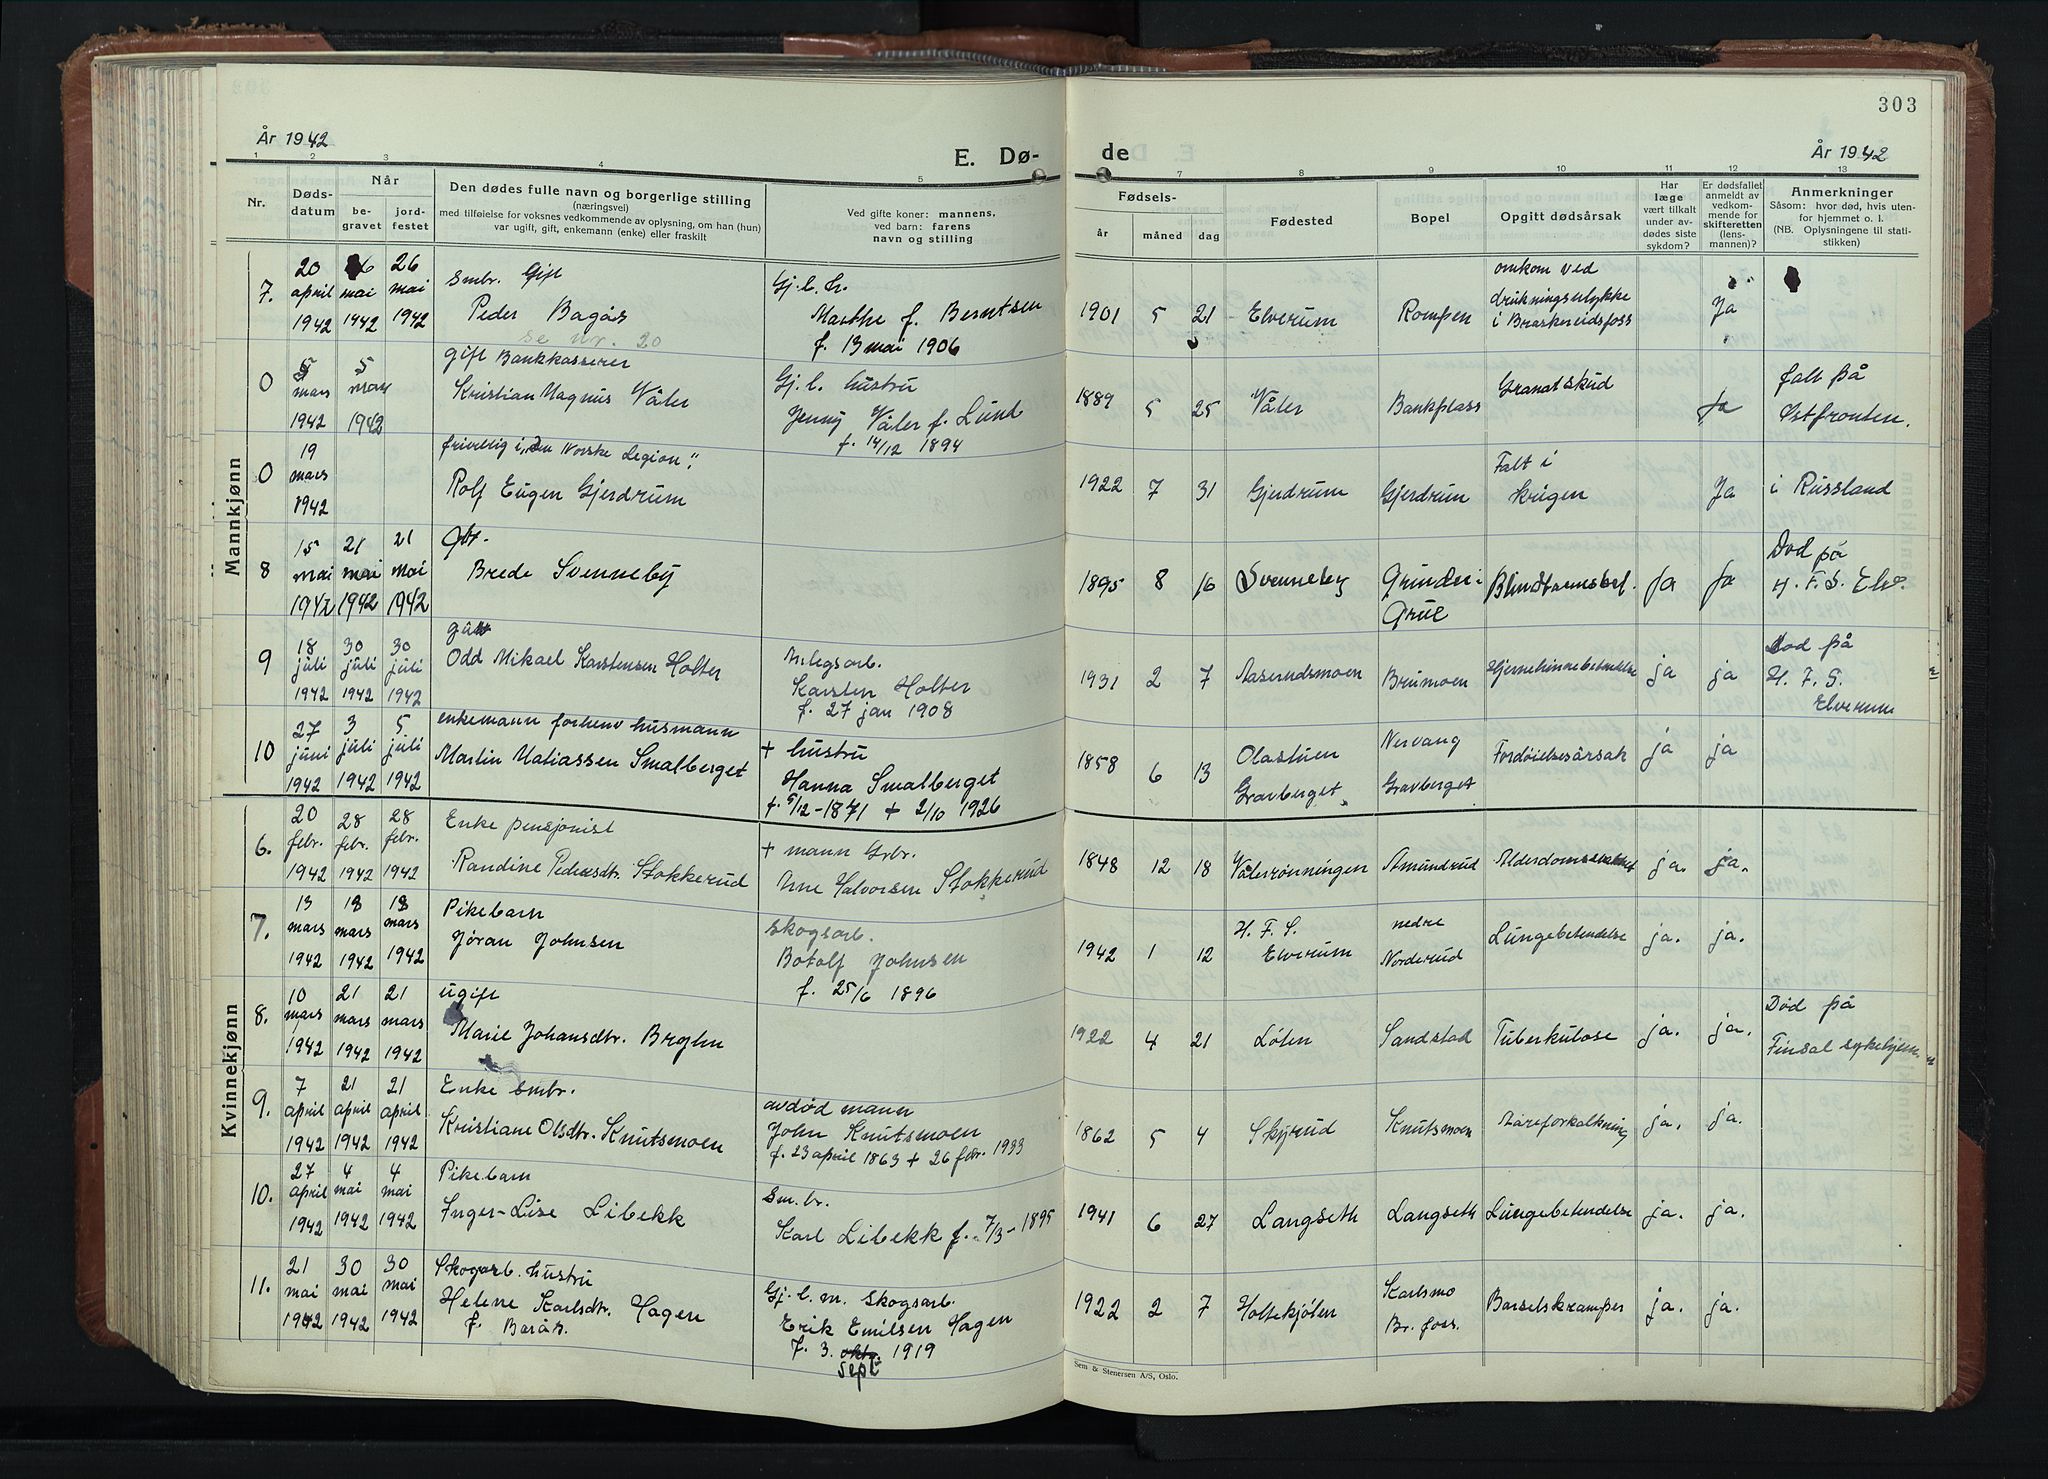 303
År 1942
E. Dø-
de
År 1942
1 2 3 4 5 7 8 9 10 11 12 13
Nr.
Døds-
datum
Når
be-
gravet
jord-
festet
Den dødes fulle navn og borgerlige stilling
(næringsvei)
med tilføielse for voksnes vedkommende av oplysning, om han (hun)
var ugift, gift, enkemann (enke) eller fraskilt
Ved gifte koner: mannens,
ved barn: farens
navn og stilling
Fødsels-
år måned dag
Fødested
Bopel
Opgitt dødsårsak
Har
læge
vært tilkalt
under av-
dødes siste
sykdom?
Er dødsfallet
anmeldt av
vedkom-
mende for
skifteretten
(lens-
mannen)?
Anmerkninger
Såsom: hvor død, hvis uten-
for hjemmet o. l.
(NB. Oplysningene til stati-
stikken)
Mannkjønn
7.
20 april 1942
26 mai 1942
26 mai 1942
Smbr. Gift
Peder Bagås
se nr. 20
Gj. l. h.
Marthe f. Berntsen
f. 13 mai 1906
1901 5 21
Elverum
Rompen
omkom ved
drukningsulykke
i Braskereidsfoss
Ja
0
5 mars 1942
5 mars 1942
gift Bankkasserer
Kristian Magnus Våler
Gj. l. hustru
Jenny Våler f. Lund
f. 14/12 1894
1889 5 25
Våler
Bankplass
Granatskud
Ja
falt på
Østfronten.
0
19 mars 1942
frivillig i "Den Norske Legion",
Rolf Eugen Gjerdrum
1922 7 31
Gjerdrum
Gjerdrum
Falt i
krigen
Ja
i Russland
8
15 mai 1942
21 mai 1942
21 mai 1942
Gbr.
Brede Svenneby
1895 8 16
Svenneby
Grinder i
Grue
Blindtarmsbet.
Ja
Ja
Død på
H. F. S. Elv.
9
18 juli 1942
30 juli 1942
30 juli 1942
gutt
Odd Mikael Karstensen Holter
Anlegsarb.
Karsten Holter
f. 27 jan 1908
1931 2 7
Aaserudsmoen
Brumoen
Hjernehinnebetendelse
ja
ja
Død på
H. F. S.
Elverum
10
27 juni 1942
3 juli 1942
5 juli 1942
enkemann forhenv husmann
Martin Matiassen Smalberget
+ hustru
Hanna Smalberget
f. 5/12-1871 + 2/10 1926
1858 6 13
Olastuen
Gravberget
Nervang
Gravberget
Fordøielsesårsak
ja
ja
Kvinnekjønn
6.
20 febr. 1942
28 febr. 1942
28 febr. 1942
Enke pensjonist
Randine Pedersdtr. Stokkerud
+ mann Grbr.
Arne Halvorsen Stokkerud
1848 12 18
Vålerrønningen
Amundrud
Alderdomssvakhet
ja.
ja.
7.
13 mars 1942
18 mars 1942
18 mars 1942
Pikebarn
Jøran Johnsen
Skogsarb.
Botolf Johnsen
f. 25/6 1896
1942 1 12
H. F. S.
Elverum
nedre
Norderud
Lungebetendelse
ja.
ja.
8.
10 mars 1942
21 mars 1942
21 mars 1942
ugift
Marie Johansdtr. Broghn
1922 4 21
Løten
Sandstad
Tuberkulose
ja.
ja.
Død på
Finsal sykehjem
9.
7 april 1942
21 april 1942
21 april 1942
Enke smbr.
Kristiane Olsdtr. Knutsmoen
avdød mann
John Knutsmoen
f. 23 april 1863 + 26 febr. 1933
1862 5 4
Skjrud
Knutsmoen
Aareforkalkning
ja.
ja.
10.
27 april 1942
4 mai 1942
4 mai 1942
Pikebarn
Inger-Lise Libekk
Sm. br.
Karl Libekk f. 7/3-1895
1941 6 27
Langseth
Langseth
Lungebetendelse
ja.
ja.
11.
21 mai 1942
30 mai 1942
30 mai 1942
Skogsarb. hustru
Helene Karlsdtr. Hagen
f. Barås.
Gj. l. m. Skogsarb.
Erik Emilsen Hagen
f. 3. oktr. 1919
sept
1922 2 7
Holtekjølen
Karlsmo
Br. foss.
Barselskramper
ja.
ja.
Sem & Stenersen A/S, Oslo.